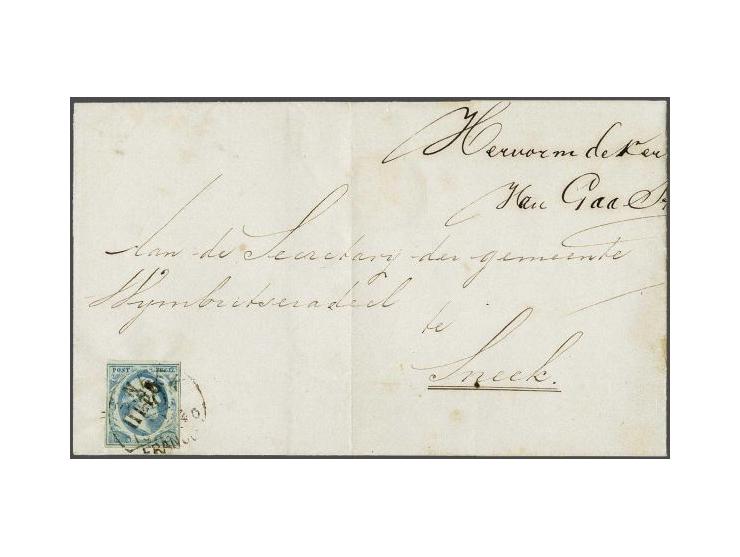 Hervormde Ker
Van Gaa St
Aan de Secretary der gemeente
Wymbritseradeel
te
Sneek.
POST ZEGEL
FRANCO